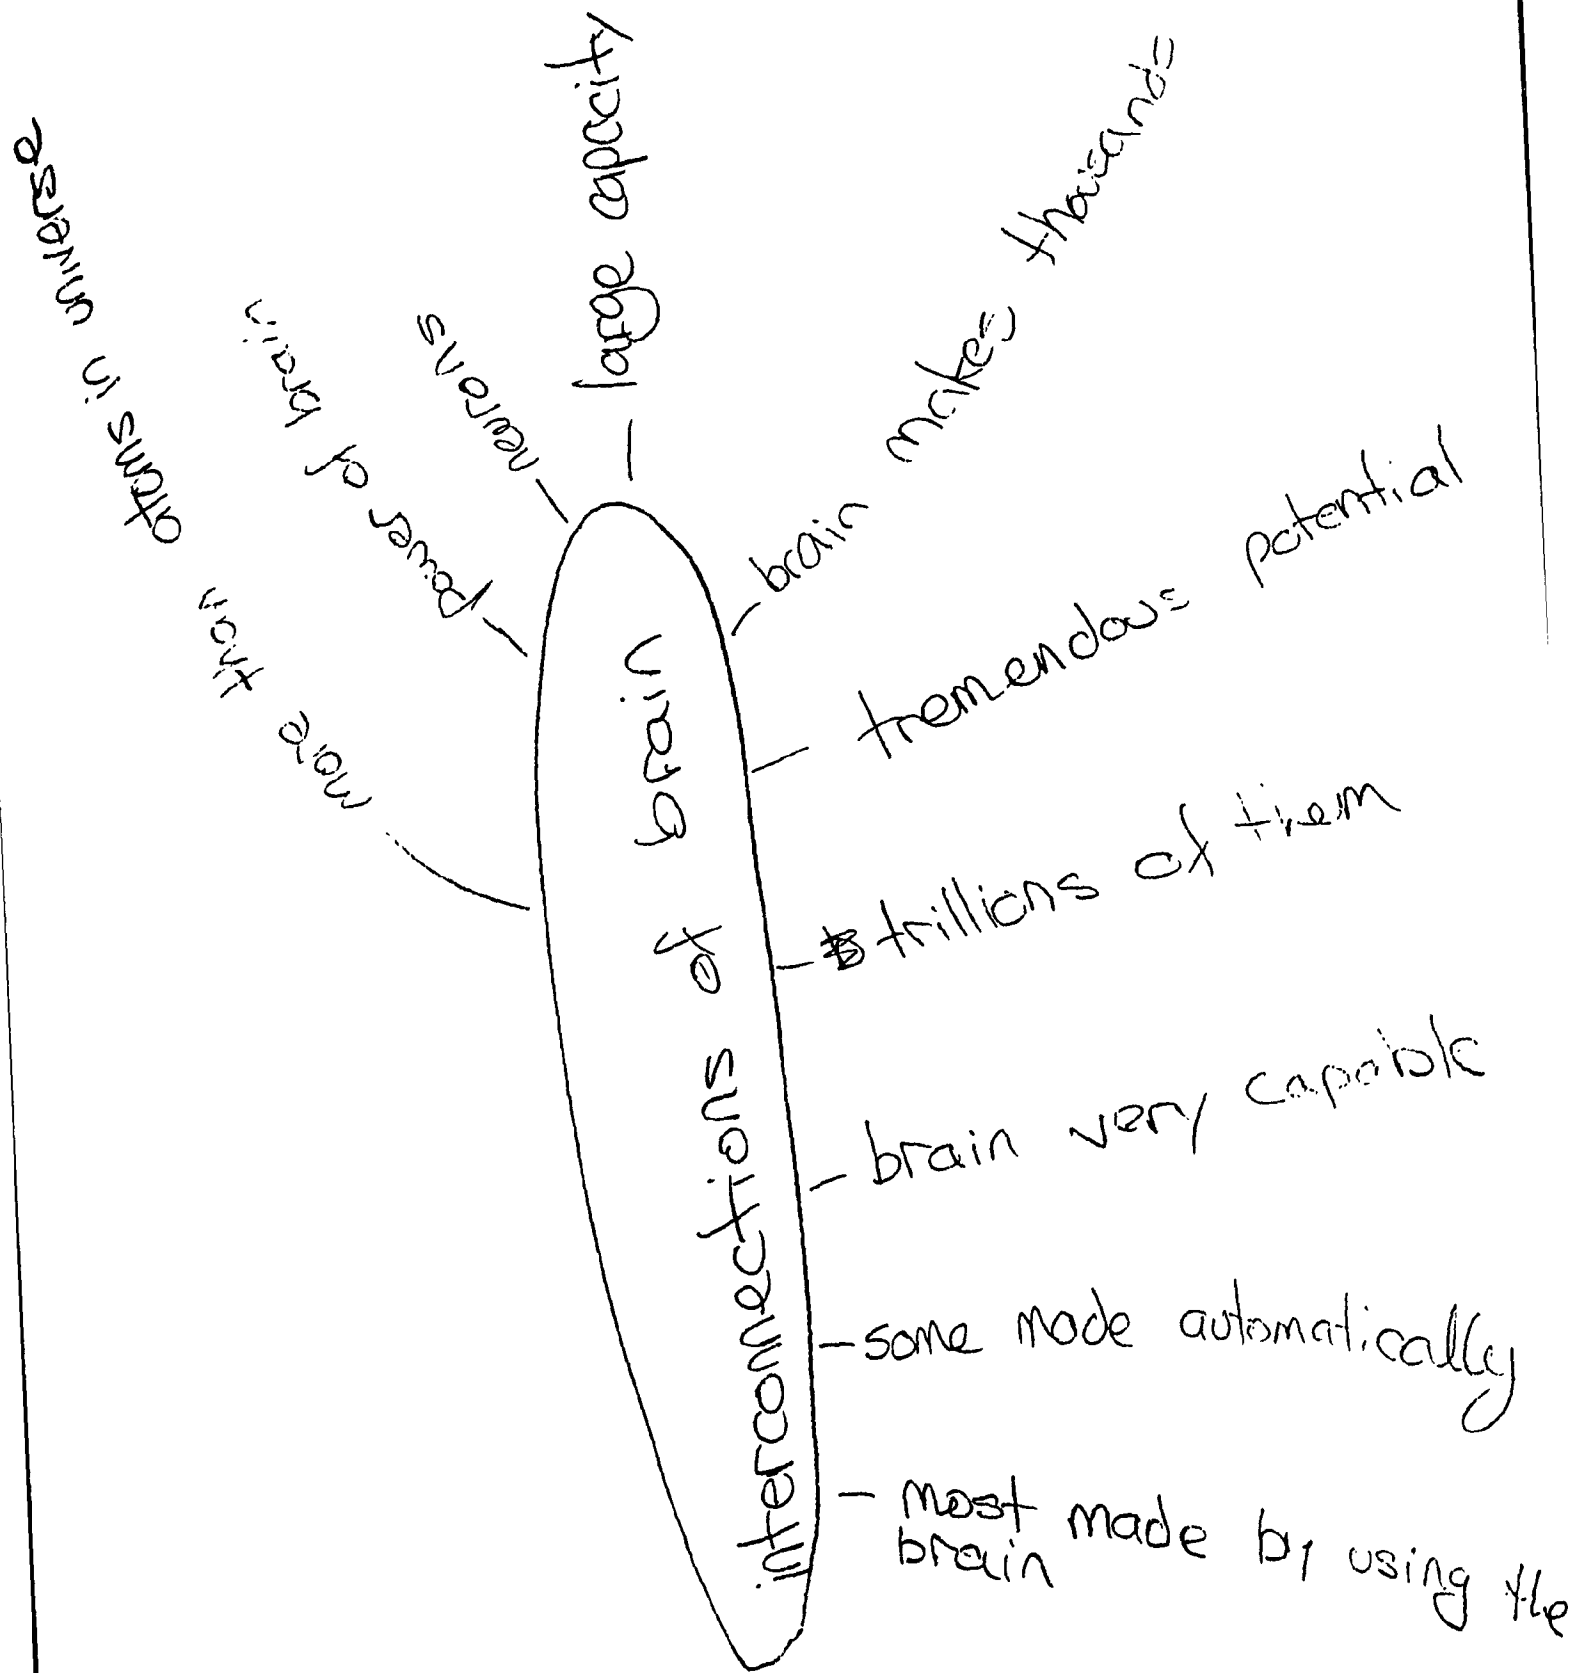 interconnections of brain
more than atoms in universe
power of brain
neurons
large capacity
brain makes thousands
tremendous potential
trillions of them
brain very capable
some made automatically
most made by using the
brain